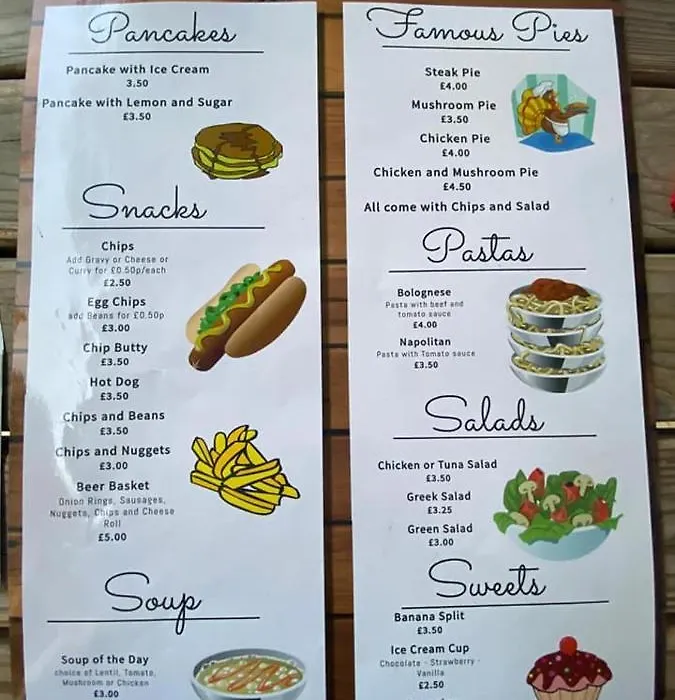 Pancakes
Pancake with Ice Cream
3.50
Pancake with Lemon and Sugar
£3.50
Snacks
Chips
Add Gravy or Cheese or
Curry for £0.50p/each
£2.50
Egg Chips
add Beans for £0.50p
£3.00
Chip Butty
£3.50
Hot Dog
£3.50
Chips and Beans
£3.50
Chips and Nuggets
£3.00
Beer Basket
Onion Rings, Sausages,
Nuggets, Chips and Cheese
Roll
£5.00
Soup
Soup of the Day
choice of Lentil, Tomato,
Mushroom or Chicken
£3.00
Famous Pies
Steak Pie
£4.00
Mushroom Pie
£3.50
Chicken Pie
£4.00
Chicken and Mushroom Pie
£4.50
All come with Chips and Salad
Pastas
Bolognese
Pasta with beef and
tomato sauce
£4.00
Napolitan
Pasta with Tomato sauce
£3.50
Salads
Chicken or Tuna Salad
£3.50
Greek Salad
£3.25
Green Salad
£3.00
Sweets
Banana Split
£3.50
Ice Cream Cup
Chocolate - Strawberry -
Vanilla
£2.50